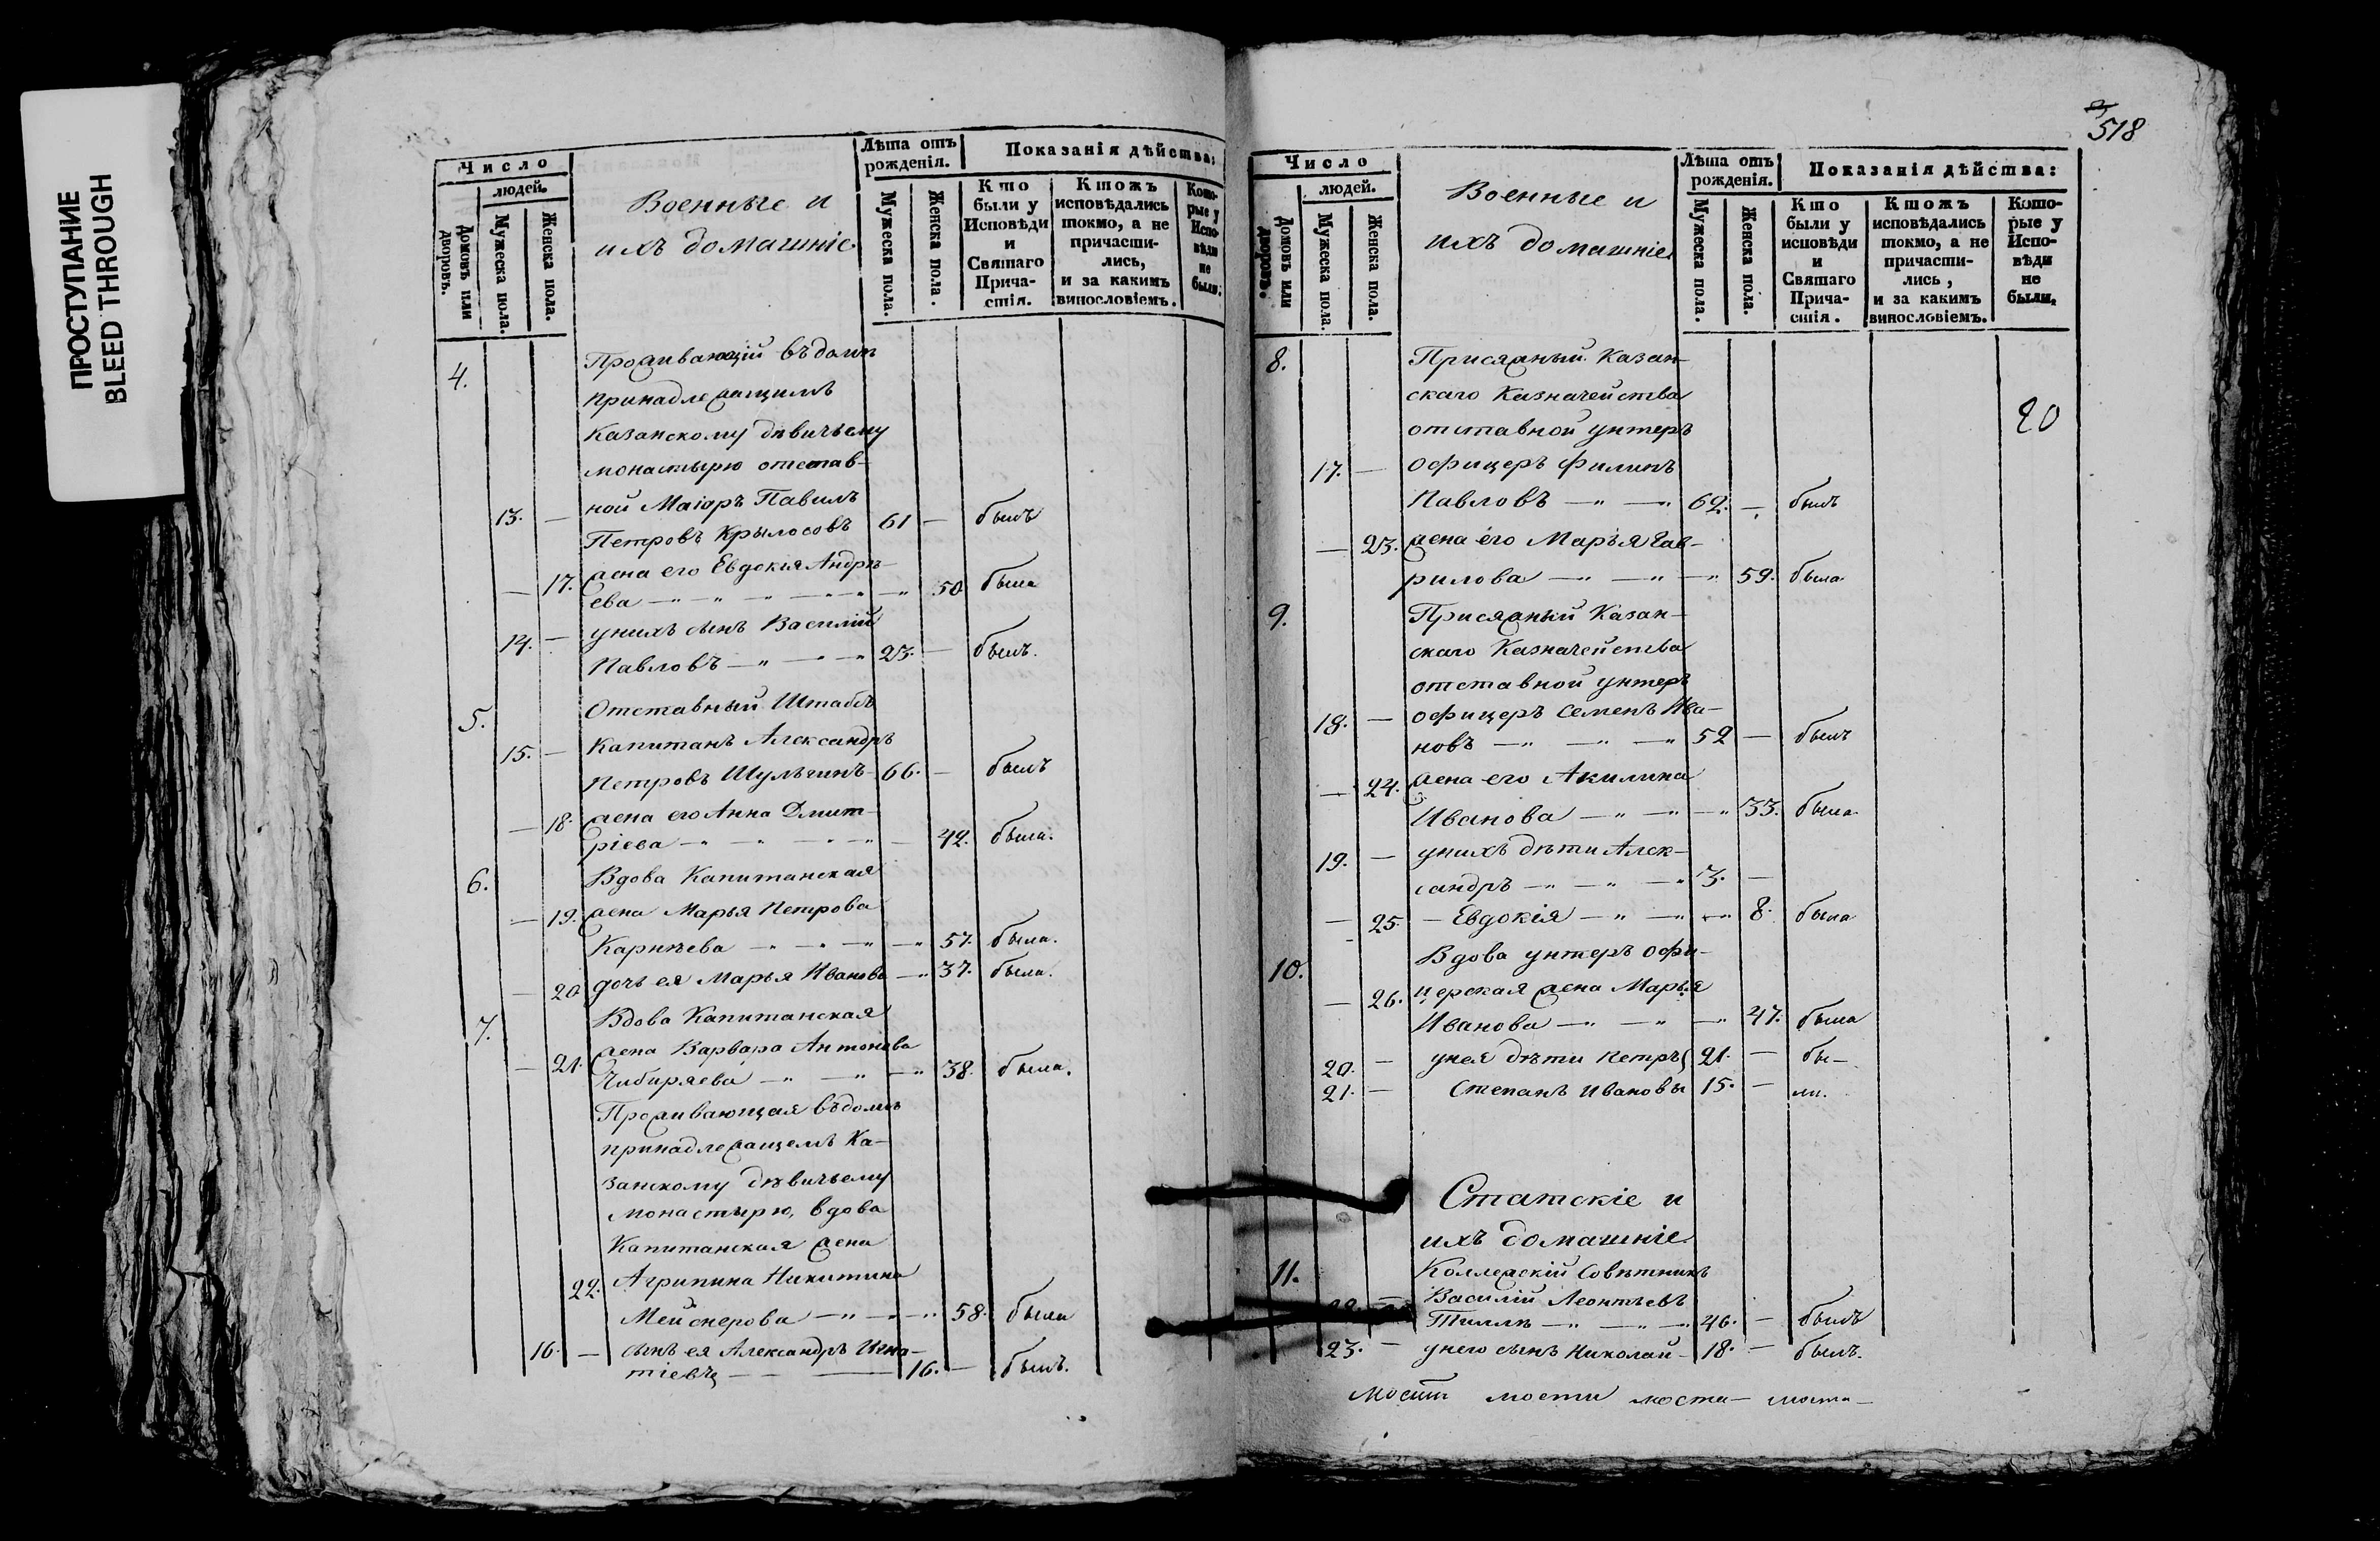 ПРОСТУПАНИЕ
BLEED THROUGH
Число
людей.
Домовъ или дворовъ.
Мужеска пола.
Женска пола.
Военные и
ихъ домашніе.
Лѣта отъ
рожденія.
Мужеска пола.
Женска пола.
Показанія дѣйства:
Кто были у Исповѣди и Святаго Прича-стія.
Ктожъ исповѣдались токмо, а не причасти-лись, и за какимъ винословіемъ.
Кото-рые у Испо-вѣди не были.
4. Проживающій въ домѣ
принадлежащимъ
Казанскому дѣвичьему
монастырю отстав-
13. — ной Маіоръ Павелъ
Петровъ Крылосовъ 61 — былъ
— 17. жена его Евдокія Андрѣ-
ева — 50. была
14. — у нихъ сынъ Василій
Павловъ — 23. — былъ.
5. Отставный Штабсъ
15. — Капитанъ Александръ
Петровъ Шульгинъ — 66. — былъ
— 18. жена его Анна Дмит-
ріева — 42. была.
6. Вдова Капитанская
— 19. жена Марья Петрова
Карнѣева — 57. была.
— 20 дочь ея Марья Иванова — 37. была.
7. Вдова Капитанская
— 21. жена Варвара Антонова
Чибиряева — 38. была.
Проживающая въ домѣ
принадлежащемъ Ка-
занскому дѣвичьему
монастырю, вдова
Капитанская жена
22. Агрипина Никитина
Мейснерова — 58. была
16. — сынъ ея Александръ Игна-
тіевъ — 16. — былъ.
518
Число
людей.
Домовъ или дворовъ.
Мужеска пола.
Женска пола.
Военные и
ихъ домашніе.
Лѣта отъ
рожденія.
Мужеска пола.
Женска пола.
Показанія дѣйства:
Кто были у исповѣди и Святаго Прича-стія.
Ктожъ исповѣдались токмо, а не причасти-лись, и за какимъ винословіемъ.
Кото-рые у Испо-вѣди не были.
8. Присяжный Казан-
скаго Казначейства
20
отставной унтеръ
17. — офицеръ Филипъ
Павловъ — 62. — былъ
— 23. жена его Марья Гав-
рилова — 59. была
9. Присяжный Казан-
скаго Казначейства
отставной унтеръ
18. — офицеръ Семенъ Ива-
новъ — 52 — былъ
— 24. жена его Акилина
Иванова — 33. была
19. — у нихъ дѣти Алек-
сандръ — 3. —
— 25. — Евдокія — 8. была
10. Вдова унтеръ офи-
— 26. церская жена Марья
Иванова — 47. была
20. — у нея дѣти Петръ 21. — бы-
21. — Степанъ Ивановы 15. — ли.
Статскіе и
ихъ домашніе.
11. Коллежскій Совѣтникъ
Василій Леонтьевъ
Тилле — 46. — былъ
23. — у него сынъ Николай — 18. — былъ.